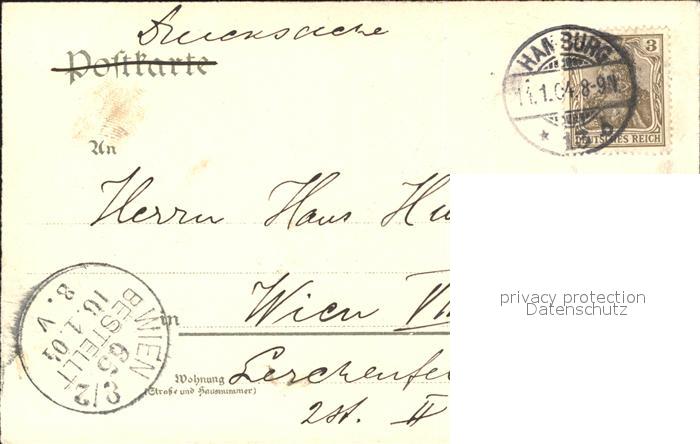 Drucksache
Postkarte
HAMBURG
1.04. 8-9 N.
* 1 b
3
DEUTSCHES REICH
An
Herrn Hans Hu
privacy protection
Datenschutz
in Wien VII
WIEN 9/2
65
BESTELLT
16. 1. 04
8. V
Wohnung Lerchenfe
(Straße und Hausnummer)
2st. II